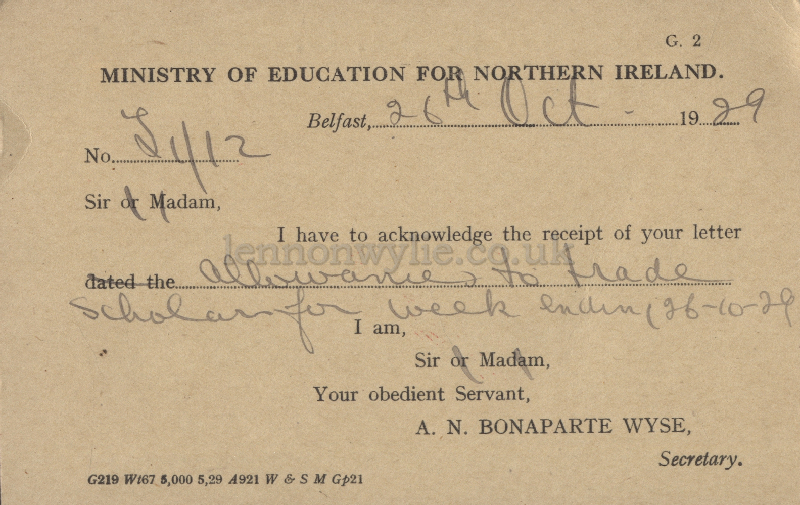 G. 2
MINISTRY OF EDUCATION FOR NORTHERN IRELAND.
Belfast, 26th Oct 1929
No. 1/12
Sir or Madam,
I have to acknowledge the receipt of your letter
lennonwylie.co.uk
dated the allowances to trade
scholar for week ending 26-10-29
I am,
Sir or Madam,
Your obedient Servant,
A. N. BONAPARTE WYSE,
Secretary.
G219 Wt67 5,000 5,29 A921 W & S M Gp21